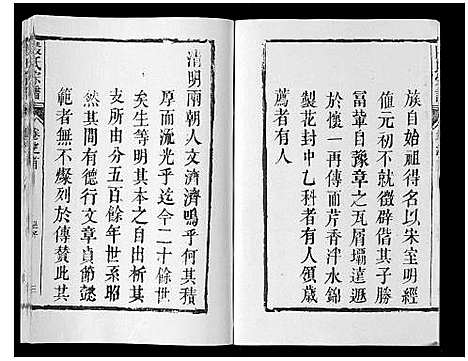 族自始祖得名以宋室明經
值元初不就徵辟偕其子來
富華自豫章之瓦屑壩不忘
於懷一再傳而芹香泮水錦
製花封中乙科者有人領歲
薦者有人
清明兩朝人文濟濟嗚乎何其積
厚而流光乎迄今二十餘世
矣生等明其本之自出析其
支所由分五百餘年世系昭
然其間有德行文章貞節懿
範者無不燦列於傳贊此其
氏宗譜
卷之首